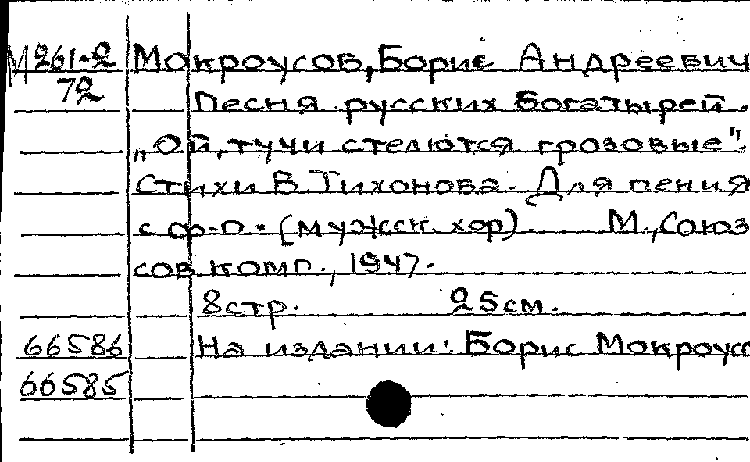 М261-2 Мокроусов, Борис Андреевич
72
Песня русских богатырей.
„Ой, тучи стелются грозовые".
Стихи В. Тихонова. Для пения
с ф-п. (мужск. хор) М., Союз
сов. комп., 1947.
8 стр. 25 см.
66586 На издании: Борис Мокроусо
66585